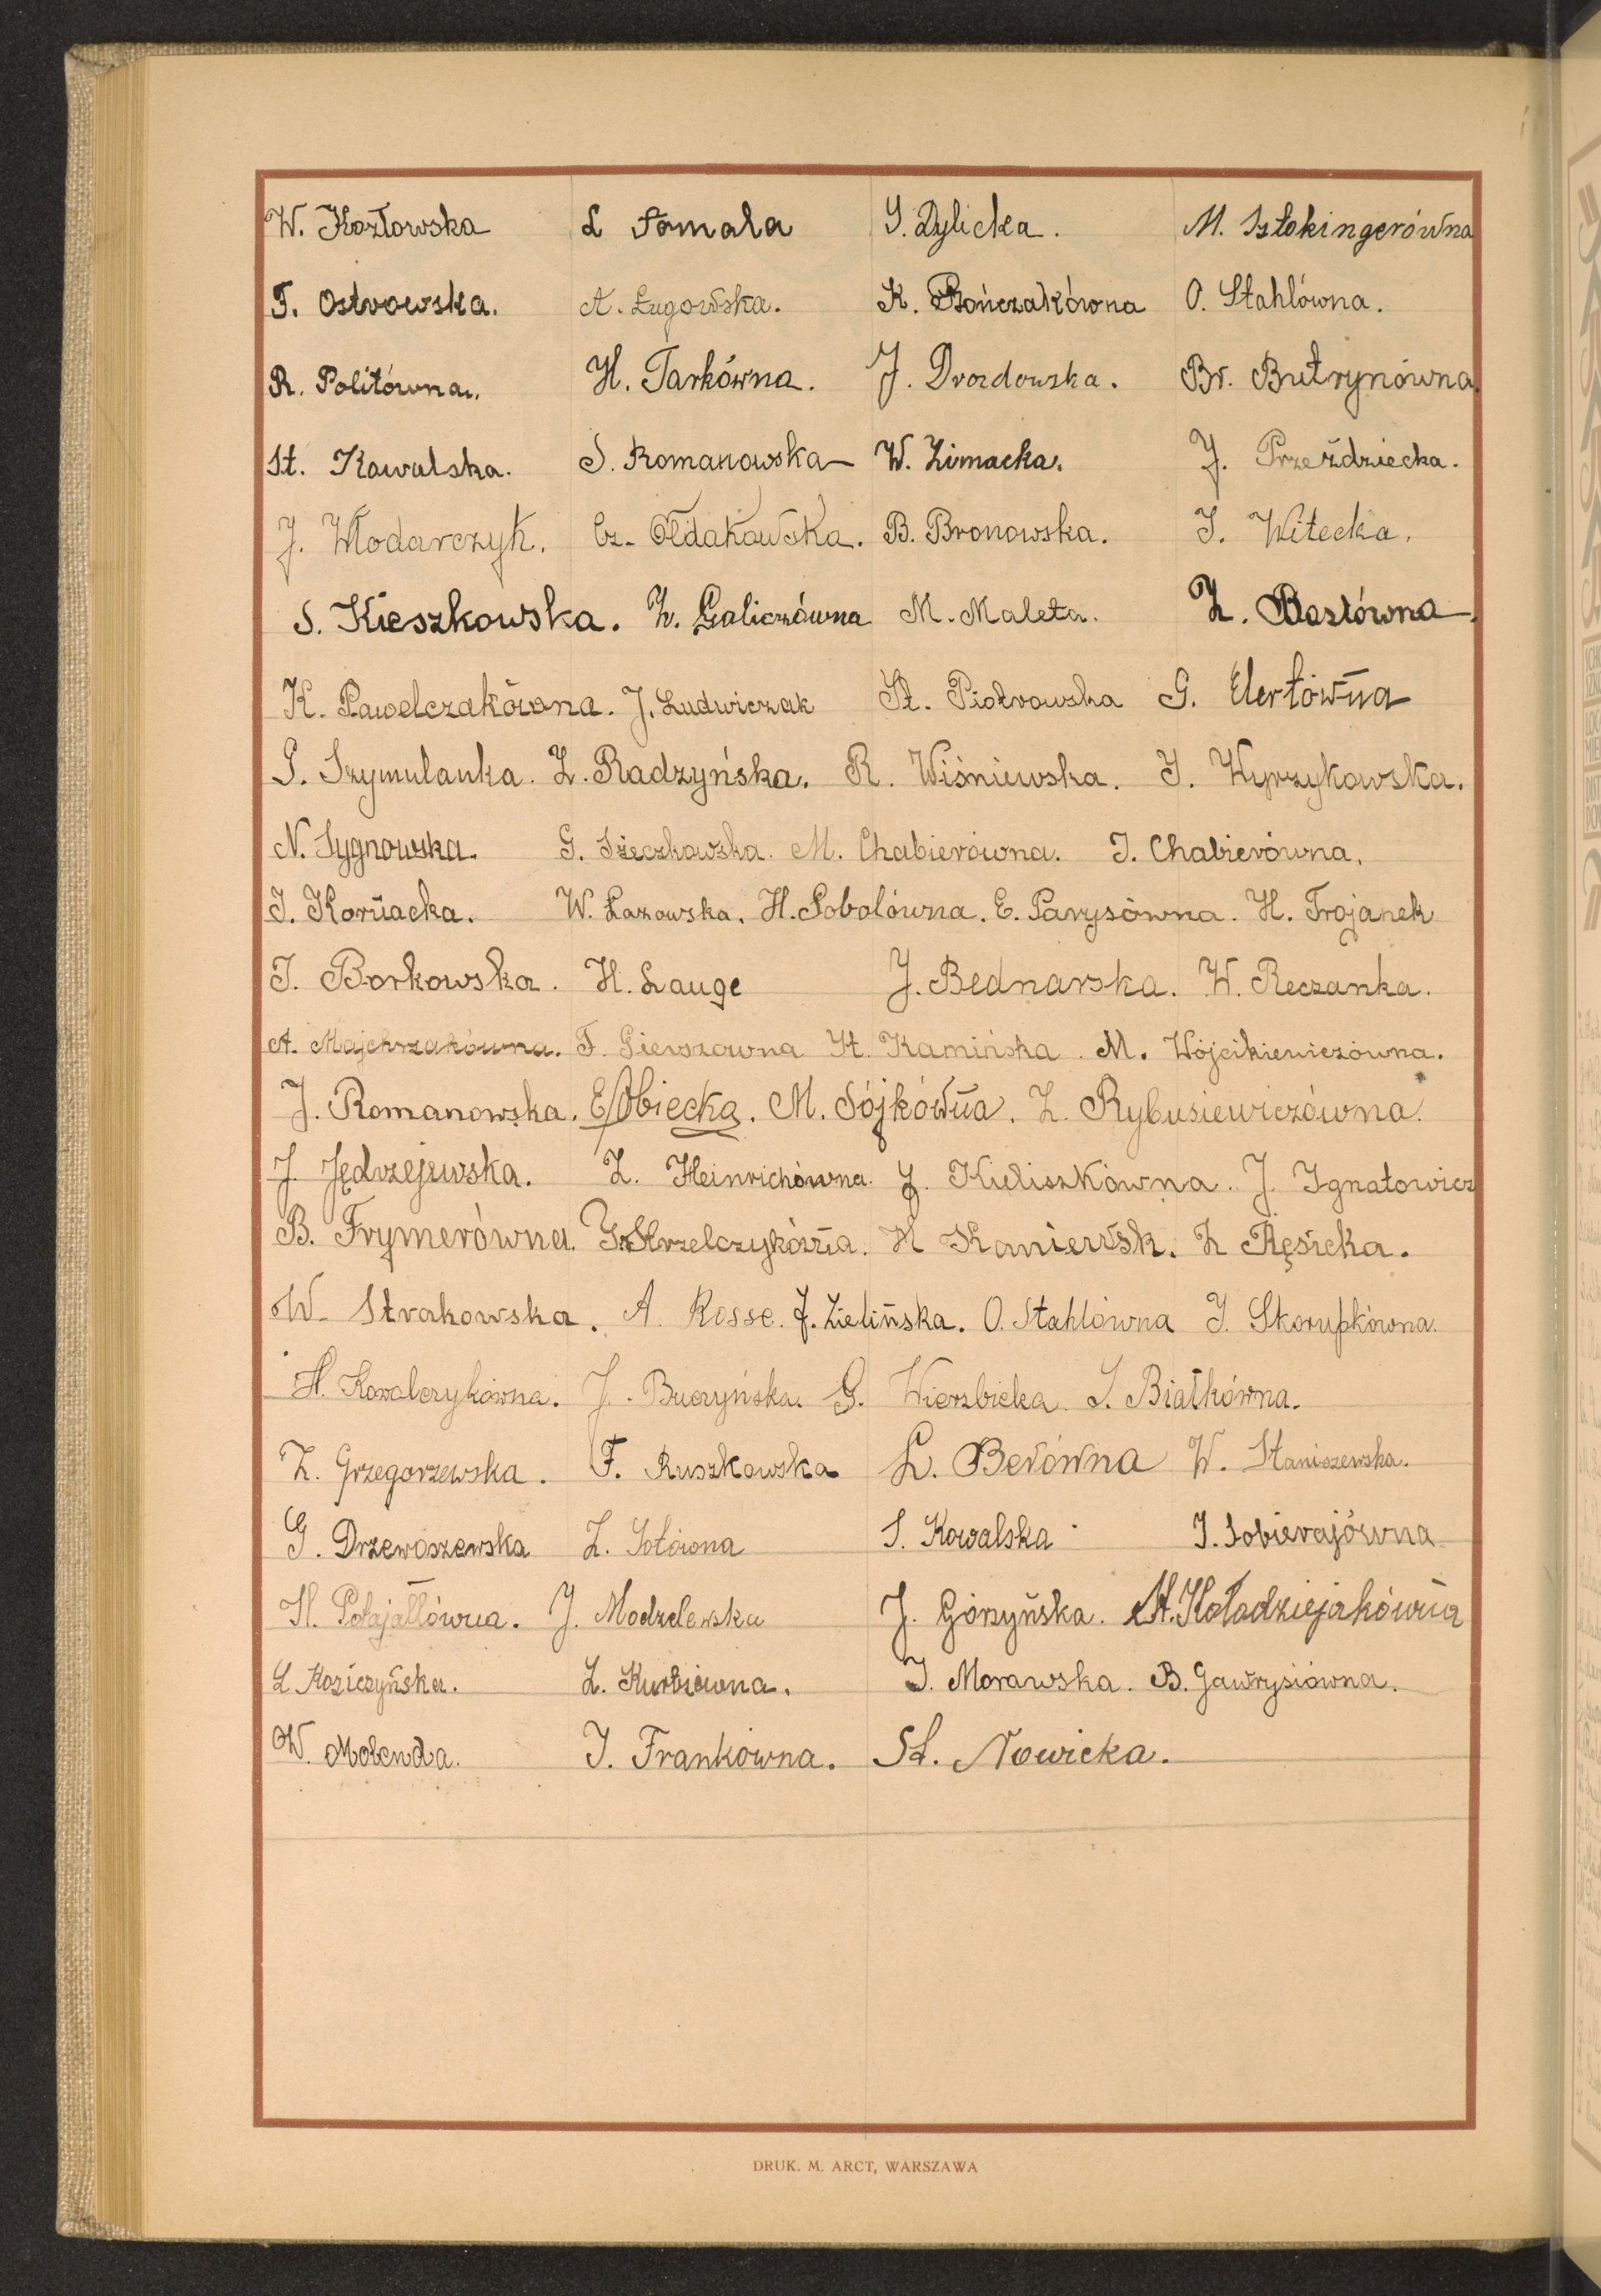 W. Kozłowska L Somala S. Dylicka. M. Sztokingerówna
F. Ostrowska. A. Ługowska. K. Rończakówna O. Stahlówna.
R. Politówna. H. Tarkówna. J. Drozdowska. Br. Butrynówna.
St. Kowalska. S. Romanowska W. Zimacka. J. Przeździecka.
J. Włodarczyk. Cz. Ołdakowska. B. Bronowska. I. Witecka.
S. Kieszkowska. Z. Galiczówna M. Maleta. Z. Baslówna.
K. Pawelczakówna. J. Ludwiczak St. Piotrowska G. Elertówna
S. Szymulanka. Z. Radzyńska. R. Wiśniewska. I. Wyrzykowska.
N. Sygnowska. G. Szeczkowska. M. Chabierówna. I. Chabierówna.
I. Kornacka. W. Łazowska. H. Sobolówna. E. Parysówna. H. Trojanek
I. Borkowska. H. Lauge J. Bednarska. W. Reczanka.
A. Majchrzakówna. F. Gierszówna St. Kamińska. M. Wójcikiewiczówna.
J. Romanowska. E. Obiecka. M. Sójkówna. Z. Rybusiewiczówna.
J. Jędrzejewska. Z. Heinrichówna. J. Kieliszkówna. J. Ignatowicz
B. Frymerówna. J. Strzelczykówna. H Kaniewsk. Z Ręsicka.
W. Strakowska. A. Rosse. J. Zielińska. O. Stahlówna I. Skorupkówna.
H. Kowalczykówna. J. Buczyńska. G. Wierzbicka. S. Białkówna.
Z. Grzegorzewska. F. Ruszkowska L. Berówna W. Staniszewska.
G. Drzewoszewska Z. Sotówna S. Kowalska I. Sobierajówna
H. Połajałłówna. J. Modzelewska J. Górzyńska. M. Kołodziejakówna
L Koziczyńska. Z. Kurbiówna. I. Morawska. B. Gawrysiówna.
W. Molenda. I. Frankówna. St. Nowicka.
DRUK. M. ARCT, WARSZAWA